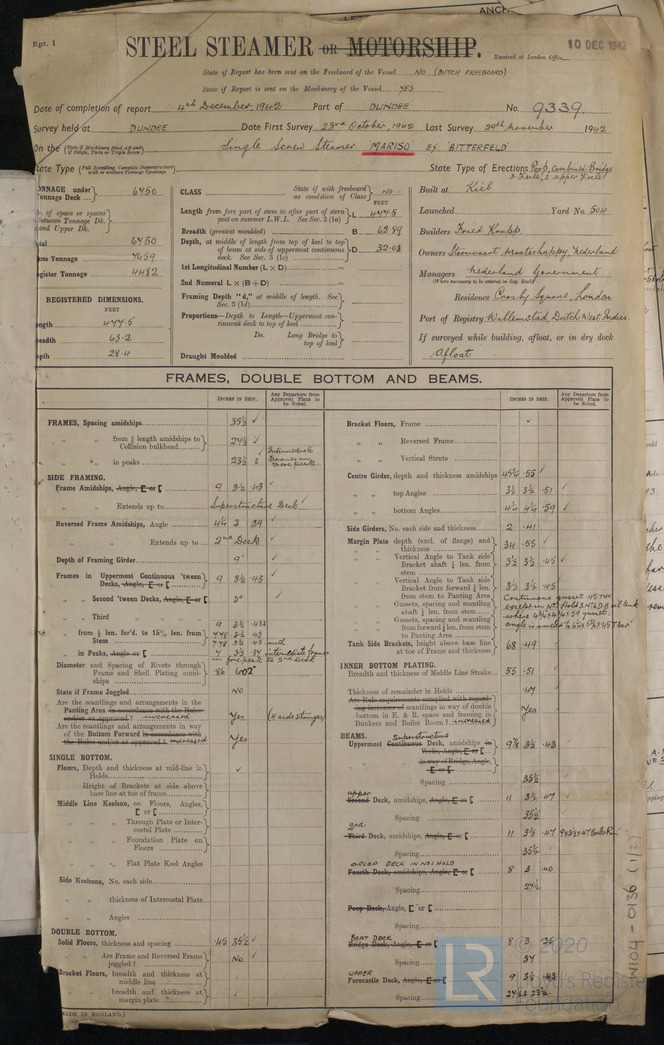 Rpt. 1
STEEL STEAMER OR MOTORSHIP.
10 DEC 1942
Received at London Office
State if Report has been sent on the Freeboard of the Vessel NO (DUTCH FREEBOARD)
State if Report is sent on the Machinery of the Vessel YES
Date of completion of report 4th December, 1942 Port of DUNDEE No. 9339.
Survey held at DUNDEE Date First Survey 23rd October, 1942 Last Survey 29th November 1942
On the Single Screw Steamer MARISO EX. 'BITTERFELD'
State Type State Type of Erections Poop, Combined Bridge
TONNAGE under Tonnage Deck ... 6450
CLASS
State if with freeboard as condition of Class NO
Built at Kiel
Length from fore part of stem to after part of stern post on summer L.W.L. See Sec. 3 (1a) L 447.5
Launched Yard No. 504
Breadth (greatest moulded) B 62.99
Builders Fried Krupp
6450
Depth, at middle of length from top of keel to top of beam at side of uppermost continuous deck. See Sec. 3 (1c) D 32.03
Owners Stoomvaart Maatschappij, Nederland
7659
1st Longitudinal Number (L × D)
Managers Nederland Government
(Where necessary to be entered in Reg. Book)
Register Tonnage 4482
2nd Numeral L × (B + D)
Residence Crosby Square, London
REGISTERED DIMENSIONS.
FEET
Framing Depth "d," at middle of length. See Sec. 3 (1d)
Port of Registry Willemstad, Dutch West Indies
447.5
63.2
28.4
Proportions—Depth to Length—Uppermost continuous deck to top of keel
Do. Long Bridge to top of keel
If surveyed while building, afloat, or in dry dock
Afloat
Draught Moulded
FRAMES, DOUBLE BOTTOM AND BEAMS.
INCHES IN SHIP.
Any Departure from Approved Plans to be Noted.
FRAMES, Spacing amidships 35½ ✓
" " from ⅕ length amidships to Collision bulkhead 27½ ✓
" " in peaks 23½
SIDE FRAMING.
Frame Amidships, Angle, E or [ 9 3½ .43 ✓
" " Extends up to Superstructure Deck
Reversed Frame Amidships, Angle 4½ 3 .39
" " Extends up to 2nd Deck
Depth of Framing Girder 9"
Frames in Uppermost Continuous 'tween Decks, Angle, E or [ 9 3½ .43
" Second 'tween Decks, Angle, E or [ Do
" Third " "
" from ⅕ len. for'd. to 15% len. from Stem
" in Peaks, Angle or [
Diameter and Spacing of Rivets through Frame and Shell Plating amidships .86
State if Frame Joggled NO
Are the scantlings and arrangements in the Panting Area in accordance with the Rules and/or as approved? increased Yes (4 side stringers)
Are the scantlings and arrangements in way of the Bottom Forward in accordance with the Rules and/or as approved? increased Yes
SINGLE BOTTOM.
Floors, Depth and thickness at mid-line in Holds
Height of Brackets at side above base line at toe of frame
Middle Line Keelson, on Floors, Angles, E or [
" " Through Plate or Intercostal Plate
" " Foundation Plate on Floors
" " Flat Plate Keel Angles
Side Keelsons, No. each side
" " thickness of Intercostal Plate
" " Angles
DOUBLE BOTTOM.
Solid Floors, thickness and spacing .45 35½ ✓
" " Are Frame and Reversed Frame joggled? No
Bracket Floors, breadth and thickness at middle line
" " breadth and thickness at margin plate
INCHES IN SHIP.
Any Departure from Approved Plans to be Noted.
Bracket Floors, Frame
" " Reversed Frame
" " Vertical Struts
Centre Girder, depth and thickness amidships 45¼ .55
" " top Angles 3½ 3½ .51 ✓
" " bottom Angles 4¼ 4¼ .59 ✓
Side Girders, No. each side and thickness 2 .41
Margin Plate depth (excl. of flange) and thickness 34 .55
" " Vertical Angle to Tank side Bracket abaft ⅕ len. from stem 3½ 3½ .45
" " Vertical Angle to Tank side Bracket forward ⅕ len. from stem to Panting Area 3½ 3½ .45
" " Gussets, spacing and scantling abaft ⅕ len. from stem
" " Gussets, spacing and scantling forward ⅕ len. from stem to Panting Area
Tank Side Brackets, height above base line at toe of Frame and thickness 68 .49
INNER BOTTOM PLATING.
Breadth and thickness of Middle Line Strake 55 .51
Thickness of remainder in Holds .47
Yes
BEAMS. Superstructure
Uppermost Continuous Deck, amidships 9⅞ 3½ .43
Spacing 35½
Upper
Second Deck, amidships, Angle, E or [ 11 3½ .47
Spacing 35½
2nd
Third Deck, amidships, Angle, E or [ 11 3½ .47
Spacing 35½
ORLOP DECK IN No 1 HOLD
Fourth Deck, amidships, Angle, E or [ 8 3 .40
Spacing 27½
Poop Deck, Angle, E or [
Spacing
BOAT DECK
Bridge Deck, Angle, E or [ 8 3 .35
Spacing 34
UPPER
Forecastle Deck, Angle, E or [ 9 3½ .43
Spacing 27½ & 23½
(MADE IN ENGLAND.)
W104-0136 (1/2)
LR
© 2020
Lloyd's Register
Foundation